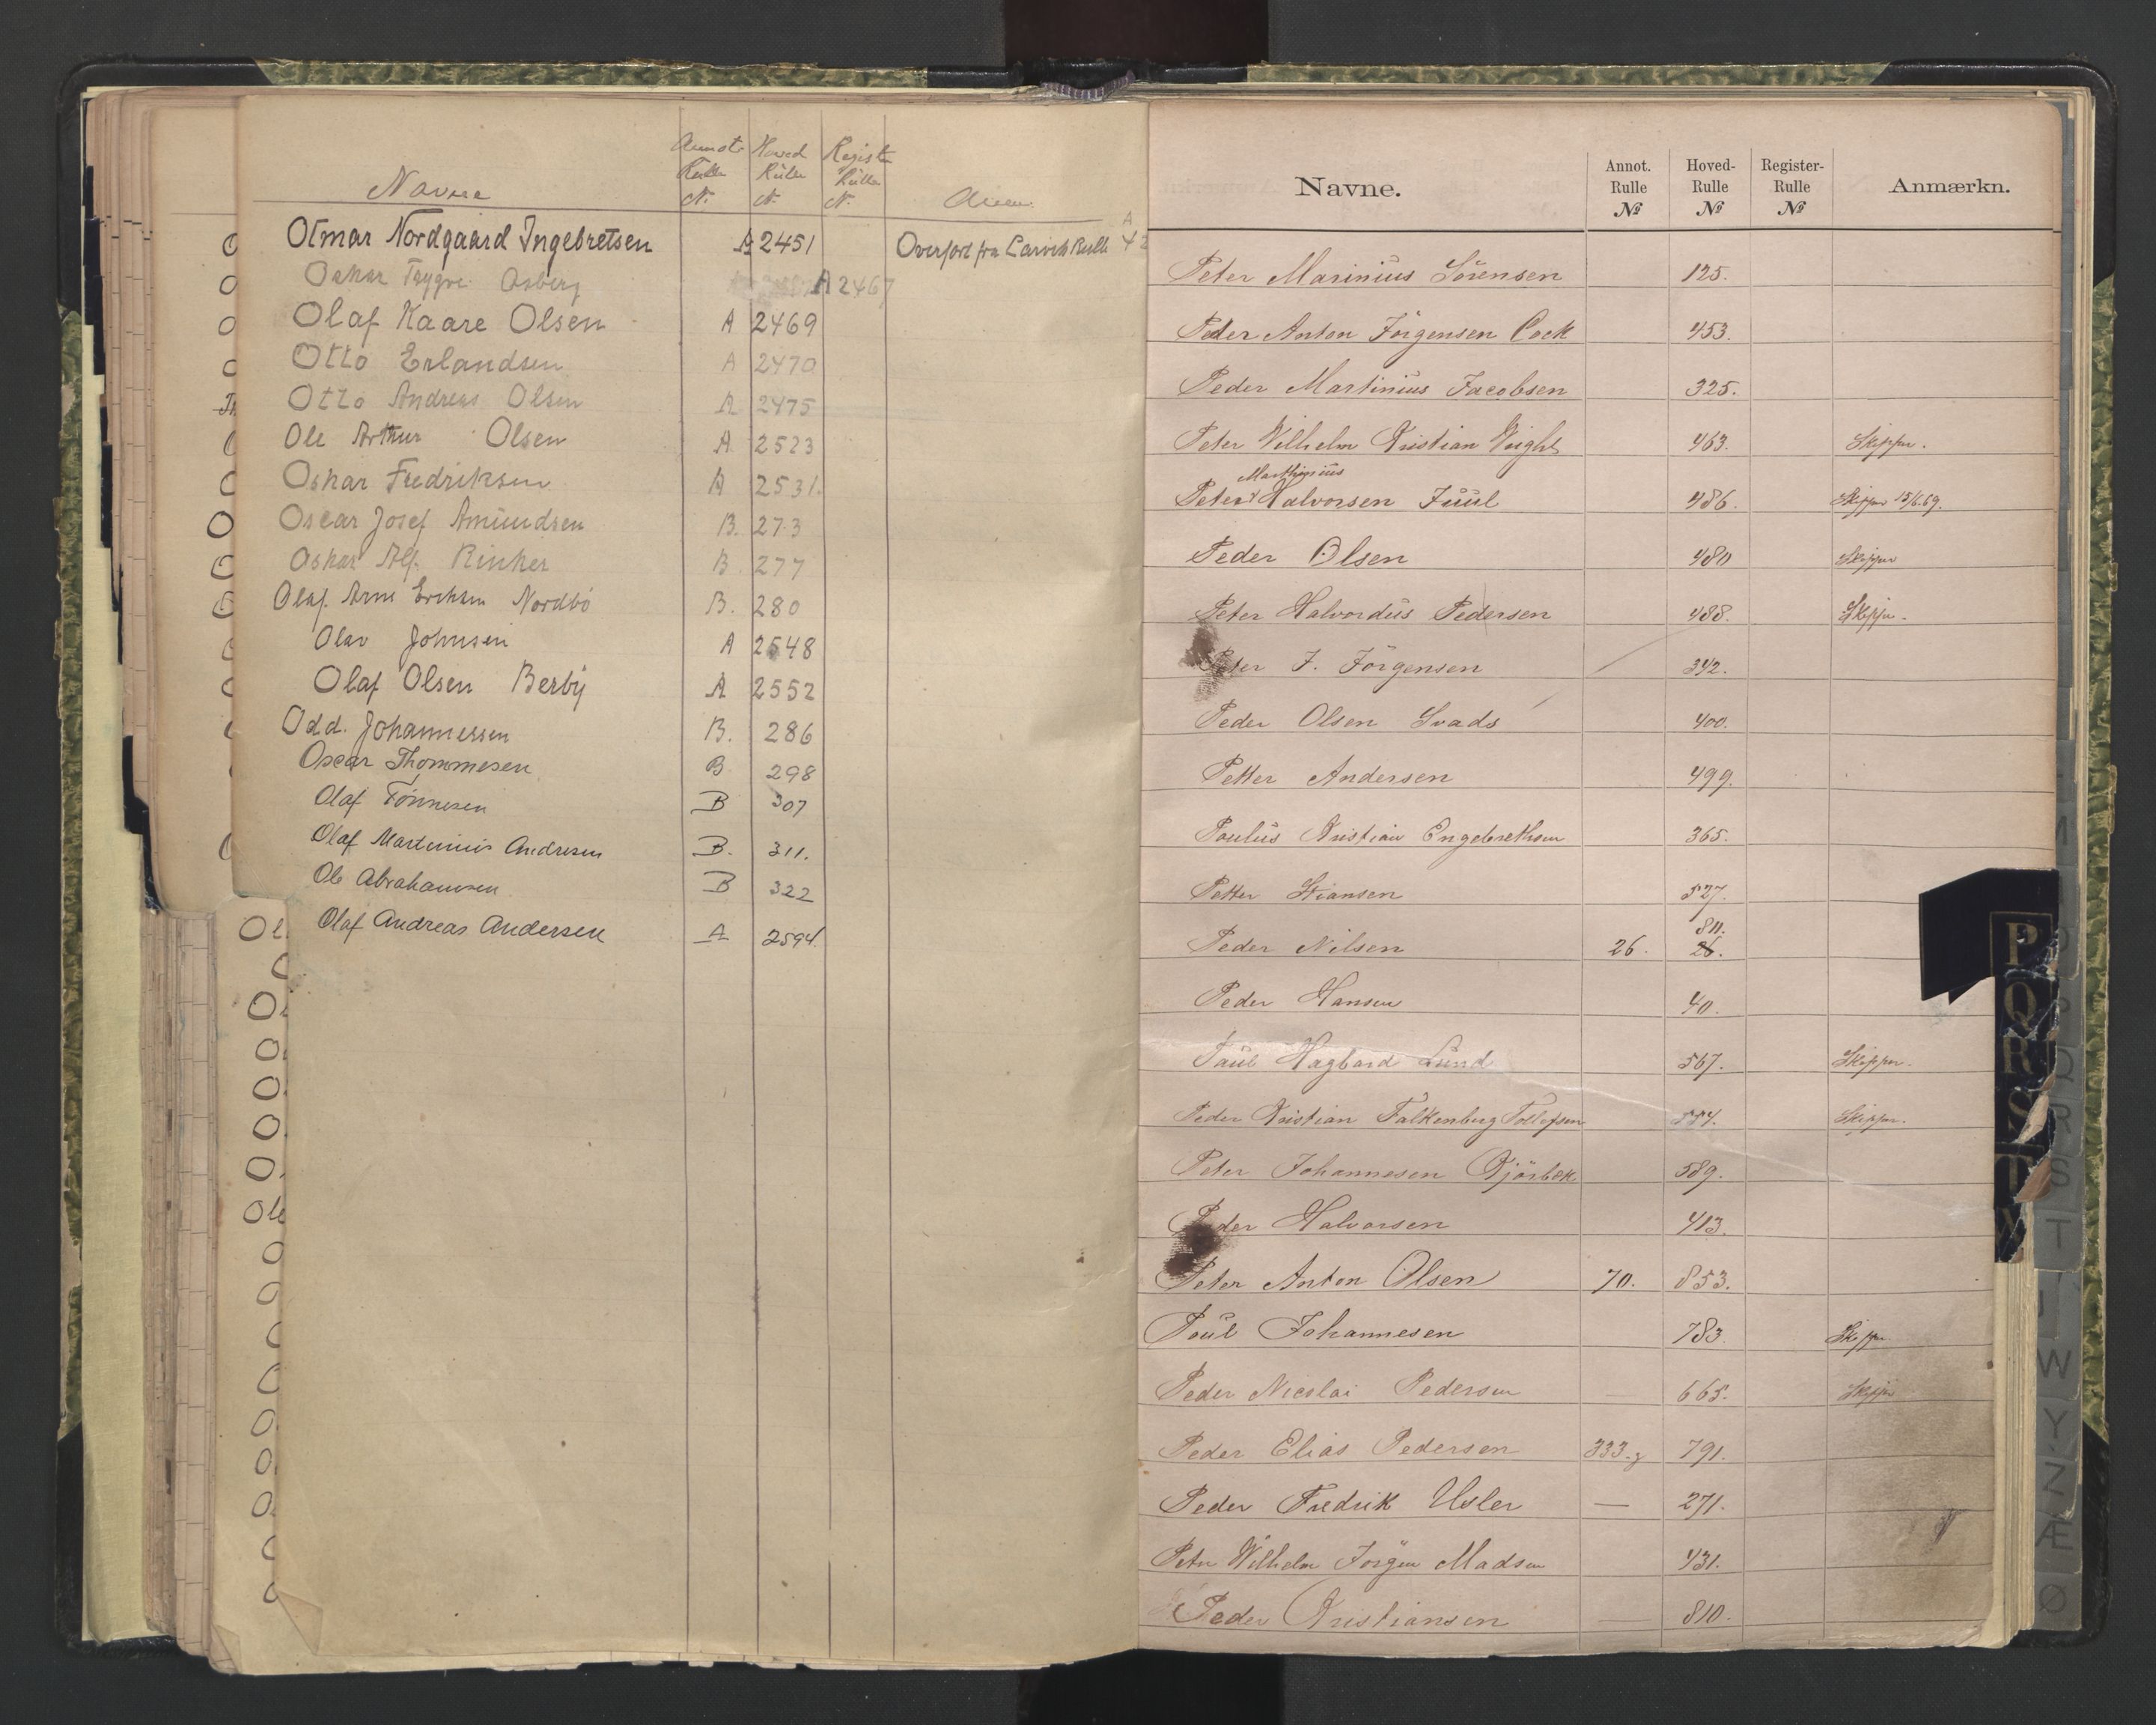 Navne Annot. Rulle N. Hoved Rulle N. Regist. Rulle N. Anm.
Otmar Nordgaard Ingebretsen A 2451 Overført fra Larvik Rulle A 42
Oskar Trygve Asberg A 2467
Olaf Kaare Olsen A 2469
Otto Erlandsen A 2470
Otto Andreas Olsen A 2475
Ole Arthur Olsen A 2523
Oskar Fredriksen A 2531.
Oscar Josef Amundsen B. 273
Oskar Alf. Rinker B. 277
Olaf Arne Erichsen Nordbö B. 280
Olav Johnsen A 2548
Olaf Olsen Berby A 2552
Odd. Johannessen B. 286
Oscar Thommesen B. 298
Olaf Tönnesen B 307
Olaf Martinius Andresen B. 311.
Ole Abrahamsen B 322
Olaf Andreas Andersen A 2594.
Navne. Annot. Rulle № Hoved-Rulle № Register-Rulle № Anmærkn.
Peter Marinius Sörensen 125.
Peder Anton Jörgensen Cock 453.
Peder Martinius Jacobsen 325.
Peter Wilhelm Kristian Wright 463. Skipper.
Marthinius
Peter Halvorsen Juul 486. Skipper 15/6.69.
Peder Olsen 480 Skipper
Peter Halvordus Pedersen 488. Skipper.
Peter J. Jörgensen 342.
Peder Olsen Svads 400.
Petter Andersen 499.
Paulus Kristian Engebrethsen 365.
Petter Stiansen 527.
811.
Peder Nilsen 26. 26.
Peder Hansen 40.
Paul Hagbard Lund 567. Skipper.
Peder Kristian Falkenberg Tollefsen 554. Skipper.
Peter Johannesen Kjörbek 589.
Peder Halvorsen 413.
Peter Anton Olsen 70. 853.
Poul Johannesen 783. Skipper
Peder Nicolai Pedersen — 665. Skipper
Peder Elias Pedersen 333.g 791.
Peder Fredrik Usler — 271.
Peter Wilhelm Jörgen Madsen 431.
Peder Kristiansen — 810.
P
Q
R
S
T
W
Y
Z
Æ
Ø